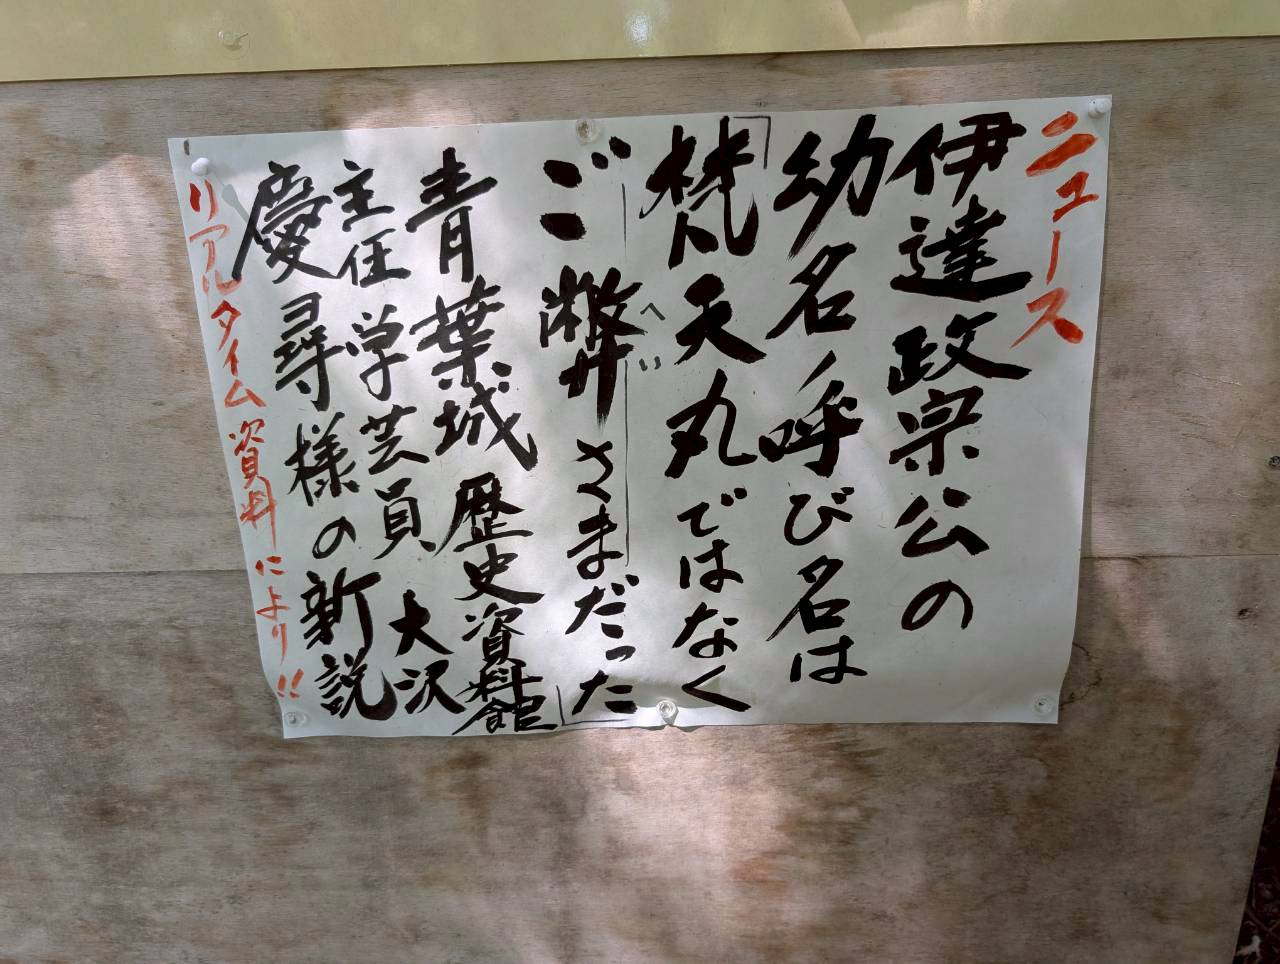 ニュース
伊達政宗公の
幼名呼び名は
「梵天丸ではなく
ご弊さまだった」
へい
青葉城歴史資料館
主任学芸員 大沢
慶尋様の新説
リアルタイム資料により!!